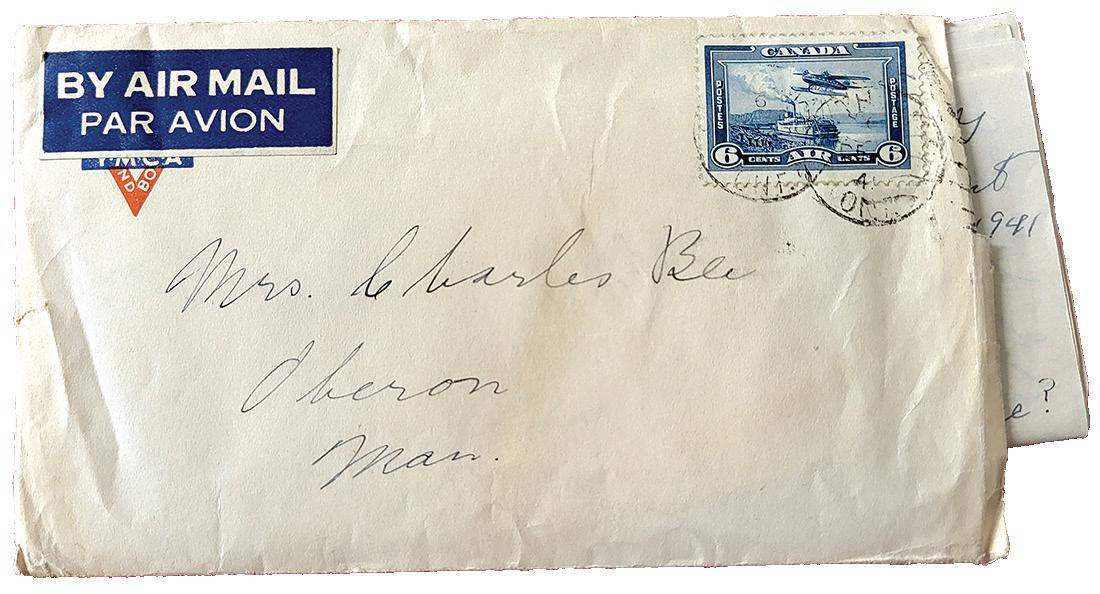 BY AIR MAIL
PAR AVION
YMCA
CANADA
POSTES
POSTAGE
6 CENTS AIR CENTS 6
41
ONT
1941
Mrs. Charles Bee
Oberon
Man.
e?